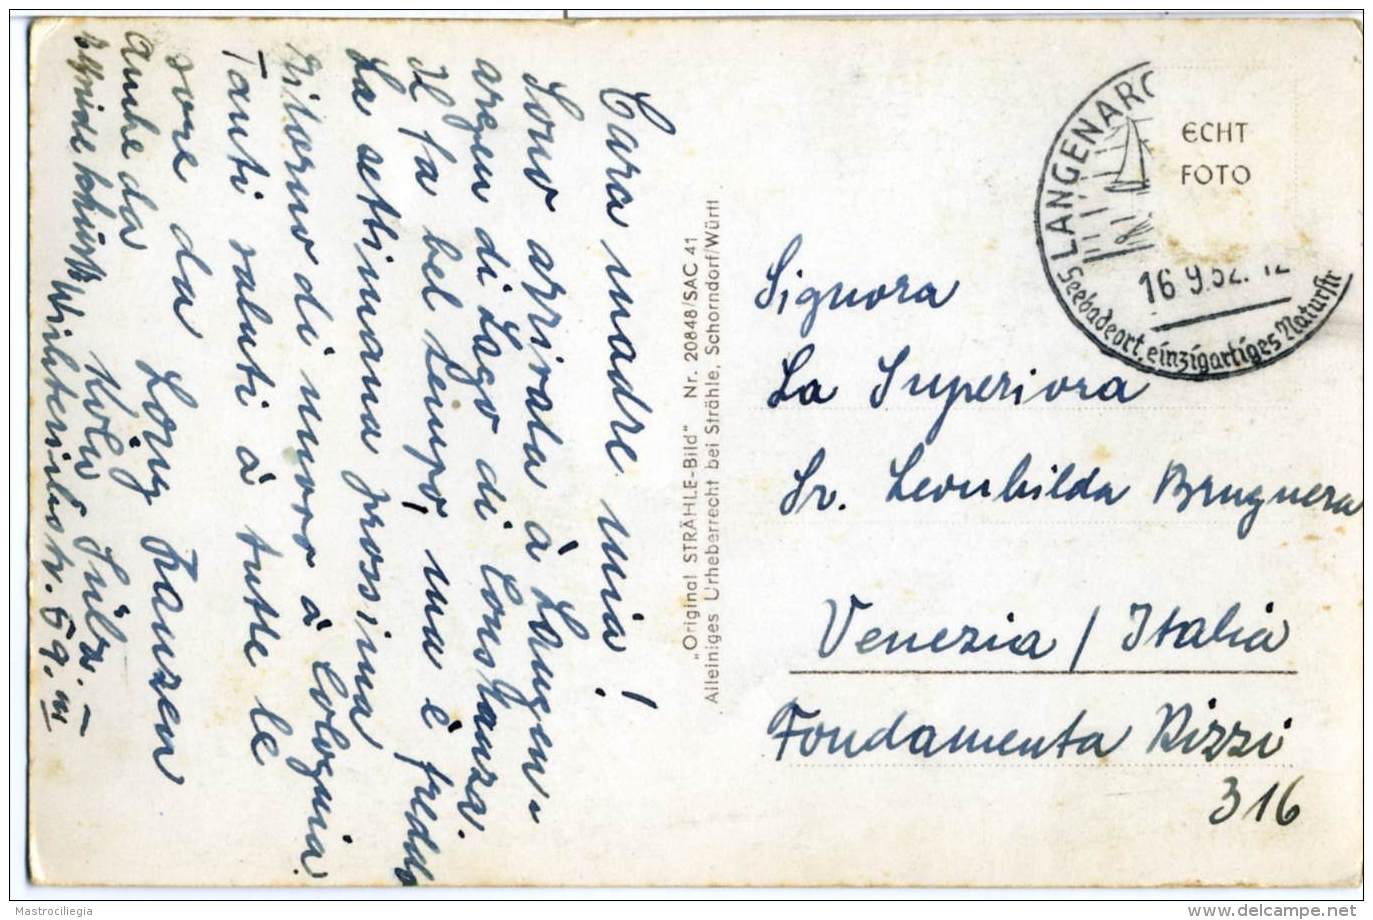 Cara madre mia!
Sono arrivada à Langen-
argen di Lago di Constanza.
Il fa bel tempo, ma è freddo
La settimana prossima
ritorno di nuovo à Colognia.
Tanti saluti à tutte le
sore da Löny Franzen
Anche da
Köln Sülz.
str. 59. III
"Original STRÄHLE-Bild" Nr. 20848/SAC 41
Alleiniges Urheberrecht bei Strähle, Schorndorf/Württ
LANGENARG
16.9.52.-12
Seebadeort, einzigartiges Naturstr
ECHT
FOTO
Signora
La Superiora
Sr. Leonhilda Brugnera
Venezia / Italia
Fondamenta Rizzi
316
Mastrociliegia
delcampe.net